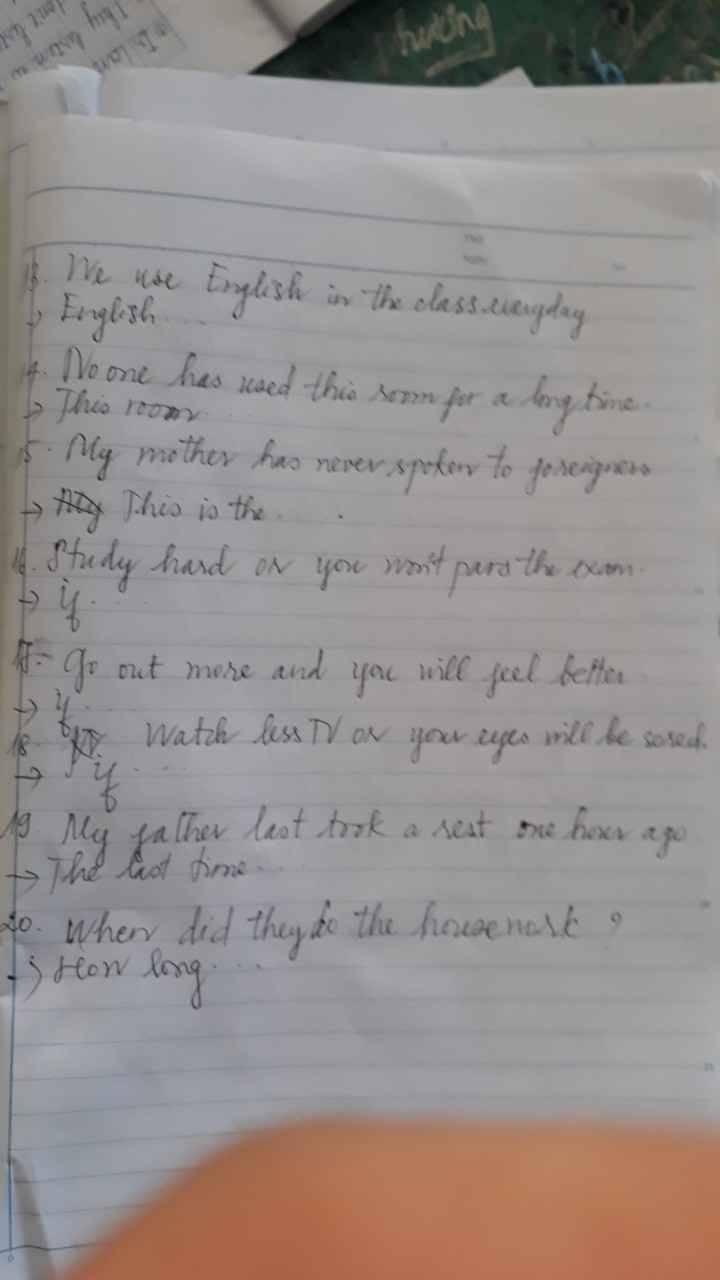 hunting
13. We use English in the class everyday
→ English....
14. No one has used this room for a long time.
→ This room...
15. My mother has never spoken to foreigners
→ This is the....
16. Study hard or you won't pass the exam.
→ if....
17. Go out more and you will feel better
→ if...
18. Watch less TV or your eyes will be sored.
→ if....
19 My father last took a rest one hour ago
→ The last time...
20. When did they do the housework?
→ How long....